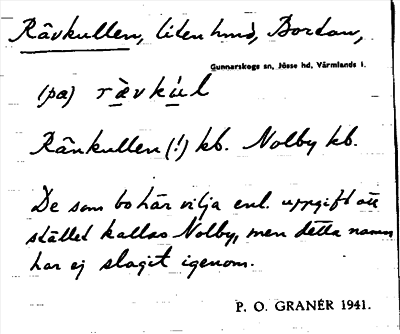 Råvkullen, liten hmd, Bordan,
Gunnarskogs sn, Jösse hd, Värmlands l.
(på) ràvkúl
Rånkullen (!) kb. Nolby kb.
De som bo här vilja enl. uppgift att
stället kallas Nolby, men detta namn
har ej slagit igenom.
P. O. GRANÉR 1941.